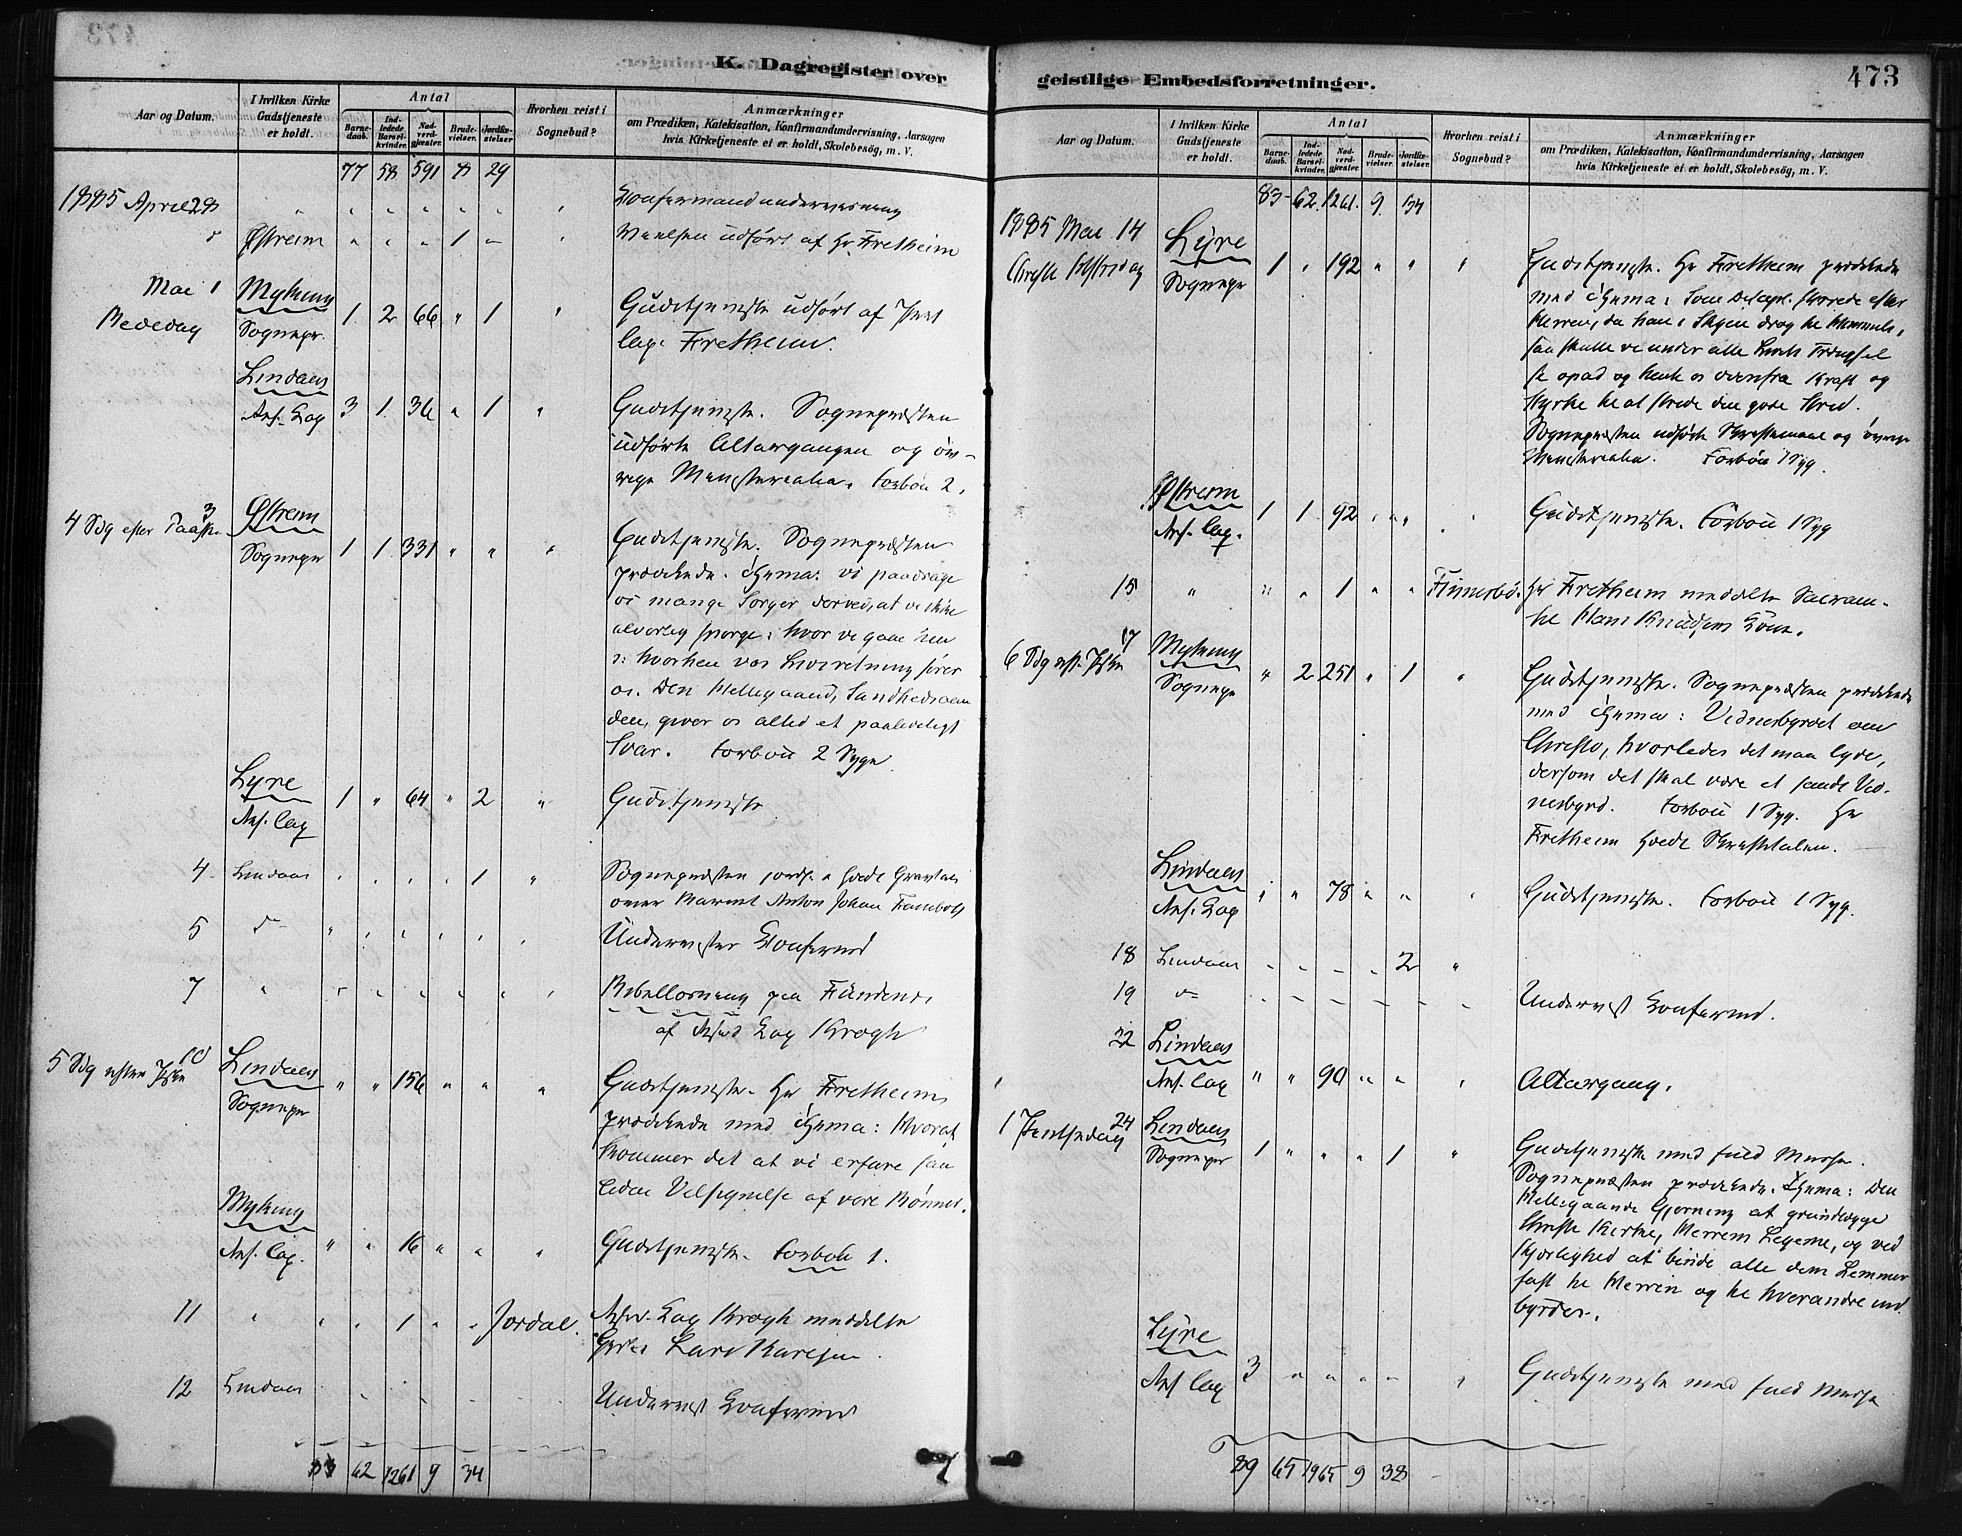 K. Dagregister over
Aar og Datum.
I hvilken Kirke Gudstjeneste er holdt.
Antal
Barnedaab.
Indledede Barselkvinder.
Nadverdgjæster.
Brudevielser.
Jordfæstelser
Hvorhen reist i Sognebud?
Anmærkninger
om Prædiken, Katekisation, Konfirmandundervisning, Aarsagen
hvis Kirketjeneste ei er holdt, Skolebesøg, m. V.
77 58 591 8 29
1885 April 28 " " " " " " Confirmandundervisning
Østreim " " " 1 " " Vielsen udført af Hr Fretheim
Mai 1 Mykeing
Bededag Sognepr. 1 2 66 " 1 " Gudstjeneste udført af Pers
Cap. Fretheim.
Lindaas
Ans. Cap 3 1 36 " 1 " Gudstjeneste. Sognepræsten
udførte Altargangen og øv-
rige Ministerialia. Forbøn 2.
4 Søg efter Paaske 3 Østreim
Sognepr 1 1 331 " " " Gudstjeneste. Sognepræsten
prædikede. Thema: vi paadrage
os mange Sorger derved, at vi ikke
alvorlig spørge: hvor vi gaae hen
: hvorhen vor Livsretning fører
os. Den Helligaand, Sandhedsaan
den, giver os altid et paalideligt
Svar. Forbøn 2 Syge
Lyre
Ans. Cap 1 " 64 " 2 " Gudstjeneste
4 Lindaas " " " " 1 " Sognepræsten jordf. holdt
over Barnet Anton Johan
5 " " " " " " Underviste Confirmd
7 " " " " " " " Bibellæsning paa
af Cap Krogh
5 Søg efter Pske 10 Lindaas
Sognepr " " 156 " " " Gudstjeneste. Hr Fretheim
prædikede med Thema: Hvoraf
kommer det at vi erfare saa
liden Velsignelse af vore Bønner.
Mykeing
Ans. Cap. " " 16 " " " Gudstjeneste. Forbøn 1.
11 " " " 1 " " Jordal. Cap Krogh meddelte
Lars
12 Lindaas Undervist Confirmd
83 62 1261 9 34
geistlige Embedsforretninger.
473
Aar og Datum.
I hvilken Kirke Gudstjeneste er holdt.
Antal
Barnedaab.
Indledede Barselkvinder.
Nadverdgjæster.
Brudevielser.
Jordfæstelser.
Hvorhen reist i Sognebud?
Anmærkninger
om Prædiken, Katekisation, Konfirmandundervisning, Aarsagen
hvis Kirketjeneste ei er holdt, Skolebesøg, m. V.
83 62. 1261. 9. 34
1885 Mai 14 Lyre
Christi Sognepr 1 " 192 " " " Gudstjeneste. Hr Fretheim prædikede
med Thema: Som Discipl. stirrede efter
Herren, da han i Skyen drog til Himmels,
saa skulle vi under alle Livets Trængsel
se opad og hente os ovenfra Kraft og
Styrke til at stride den gode Strid.
Sognepræsten udførte Skriftemaal og øvrige
Ministerialia. Forbøn 1 Syg.
Østreim
Ans. Cap. 1 1 92 " " " Gudstjeneste. Forbøn 1 Syg
15 " " " 1 " " Hr Fretheim meddelte Sacram.
til Hans Knudsens Kone.
6 Søg eft. Pske 17 Mykeing
Sognepr " 2 251 " 1 " Gudstjeneste. Sognepræsten prædikede
med Thema: Vidnesbyrdet om
Christo, hvorledes det maa lyde,
dersom det skal være et sandt Vid-
nesbyrd. Forbøn 1 Syg. Hr
Fretheim holdt Skriftetalen.
Lindaas
Ans. Cap " " 78 " " " Gudstjeneste. Forbøn 1 Syg.
18 Lindaas " " " " 2 "
19 " " " " " " Undervist Confirmd.
22 Lindaas
Ans. Cap " " 90 " " " Altargang.
1 Pintsedag 24 Lindaas
Sognepr 1 " " " 1 " Gudstjeneste med fuld Messe.
Sognepræsten prædikede. Thema: Den
Helligaands Gjerning at grundlægge
Christi Kirke, Herrens Legeme, og ved
Kjærlighed at binde alle dens Lemmer
fast til Herren og til hverandre ind
byrdes.
Lyre
Ans Cap 3 " " " " " Gudstjeneste med fuld Messe
89 65 1965 9 38